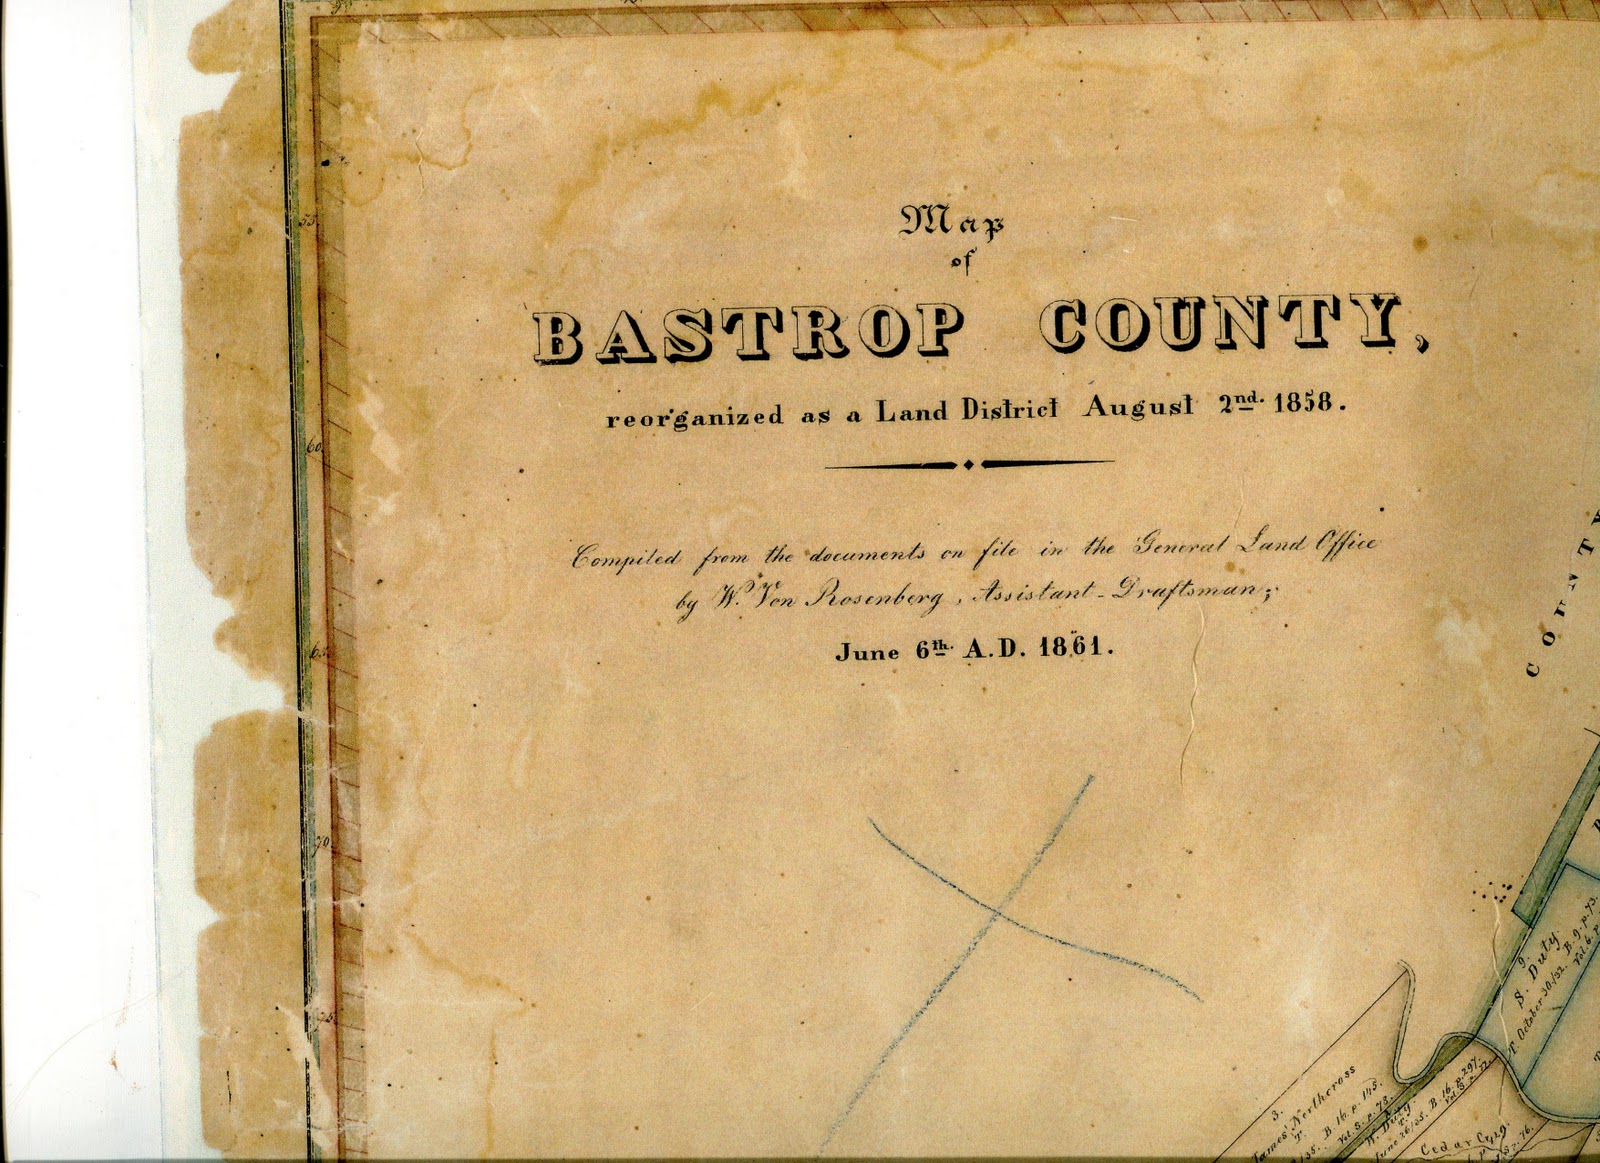 Map
of
BASTROP COUNTY,
reorganized as a Land District August 2nd. 1858.
Compiled from the documents on file in the General Land Office
by W. Von Rosenberg, Assistant-Draftsman;
June 6th. A.D. 1861.
COUNTY
55.
60.
65.
70.
75.
9.
S. Duty.
T. October 30/32. B. 9. p. 73.
Vol. 6. p.
3.
James Northcross
T.
/35. B. 16. p. 145.
Vol. 5. p. 78.
W. Duty.
T.
June 26/35. B. 16. p. 297.
Vol. 5. p.
Cedar